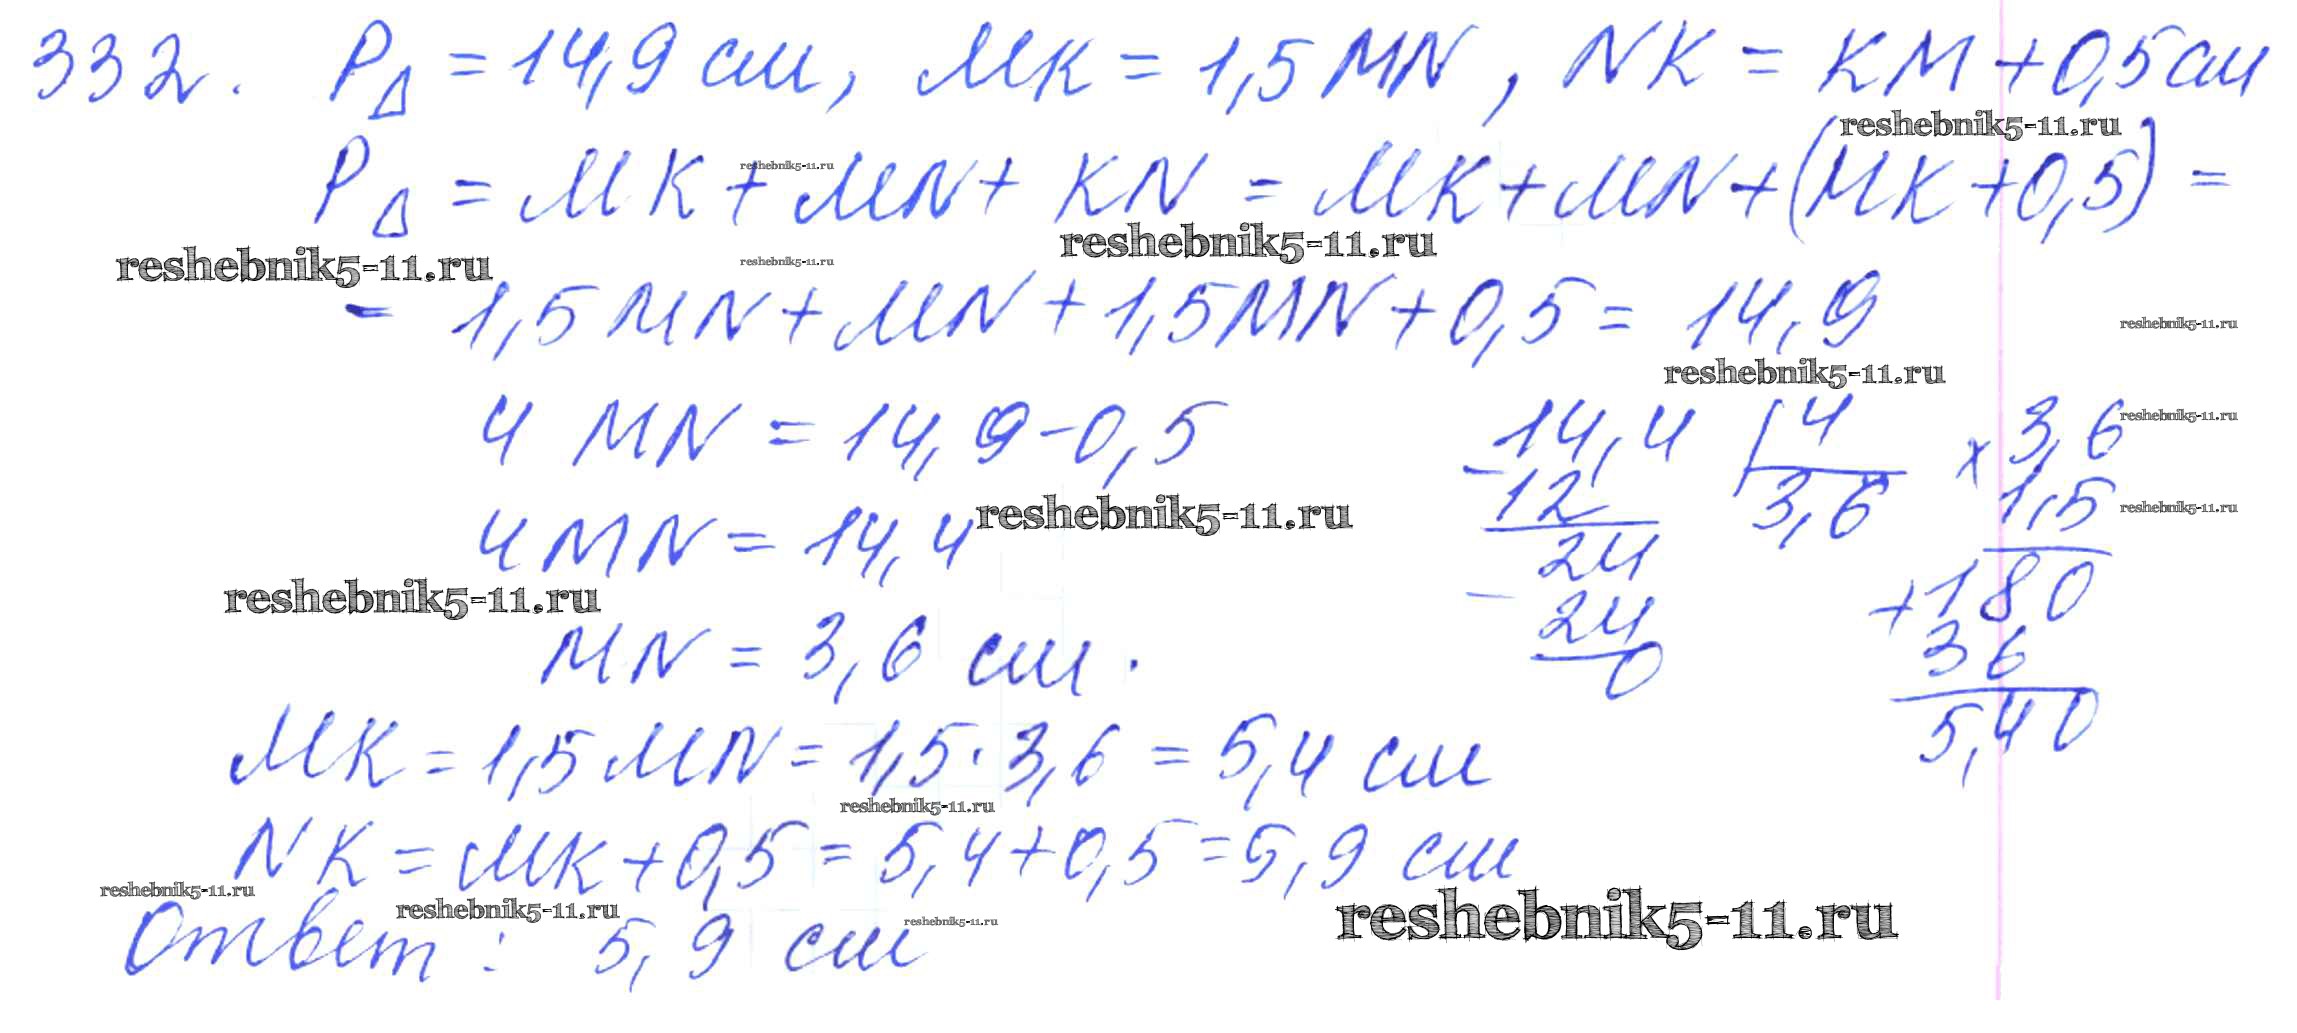 332. P△ = 14,9 см, МК = 1,5 MN, NK = KM + 0,5 см
reshebnik5-11.ru
P△ = МК + MN + KN = МК + MN + (МК + 0,5) =
reshebnik5-11.ru
reshebnik5-11.ru
reshebnik5-11.ru
reshebnik5-11.ru
= 1,5 MN + MN + 1,5 MN + 0,5 = 14,9
reshebnik5-11.ru
reshebnik5-11.ru
4 MN = 14,9 - 0,5
4 MN = 14,4
reshebnik5-11.ru
reshebnik5-11.ru
MN = 3,6 см.
- 14,4 | 4
12 3,6
- 24
24
0
× 3,6
reshebnik5-11.ru
1,5
reshebnik5-11.ru
+ 180
36
5,40
МК = 1,5 MN = 1,5 · 3,6 = 5,4 см
reshebnik5-11.ru
NK = МК + 0,5 = 5,4 + 0,5 = 5,9 см
reshebnik5-11.ru
reshebnik5-11.ru
reshebnik5-11.ru
reshebnik5-11.ru
Ответ: 5,9 см